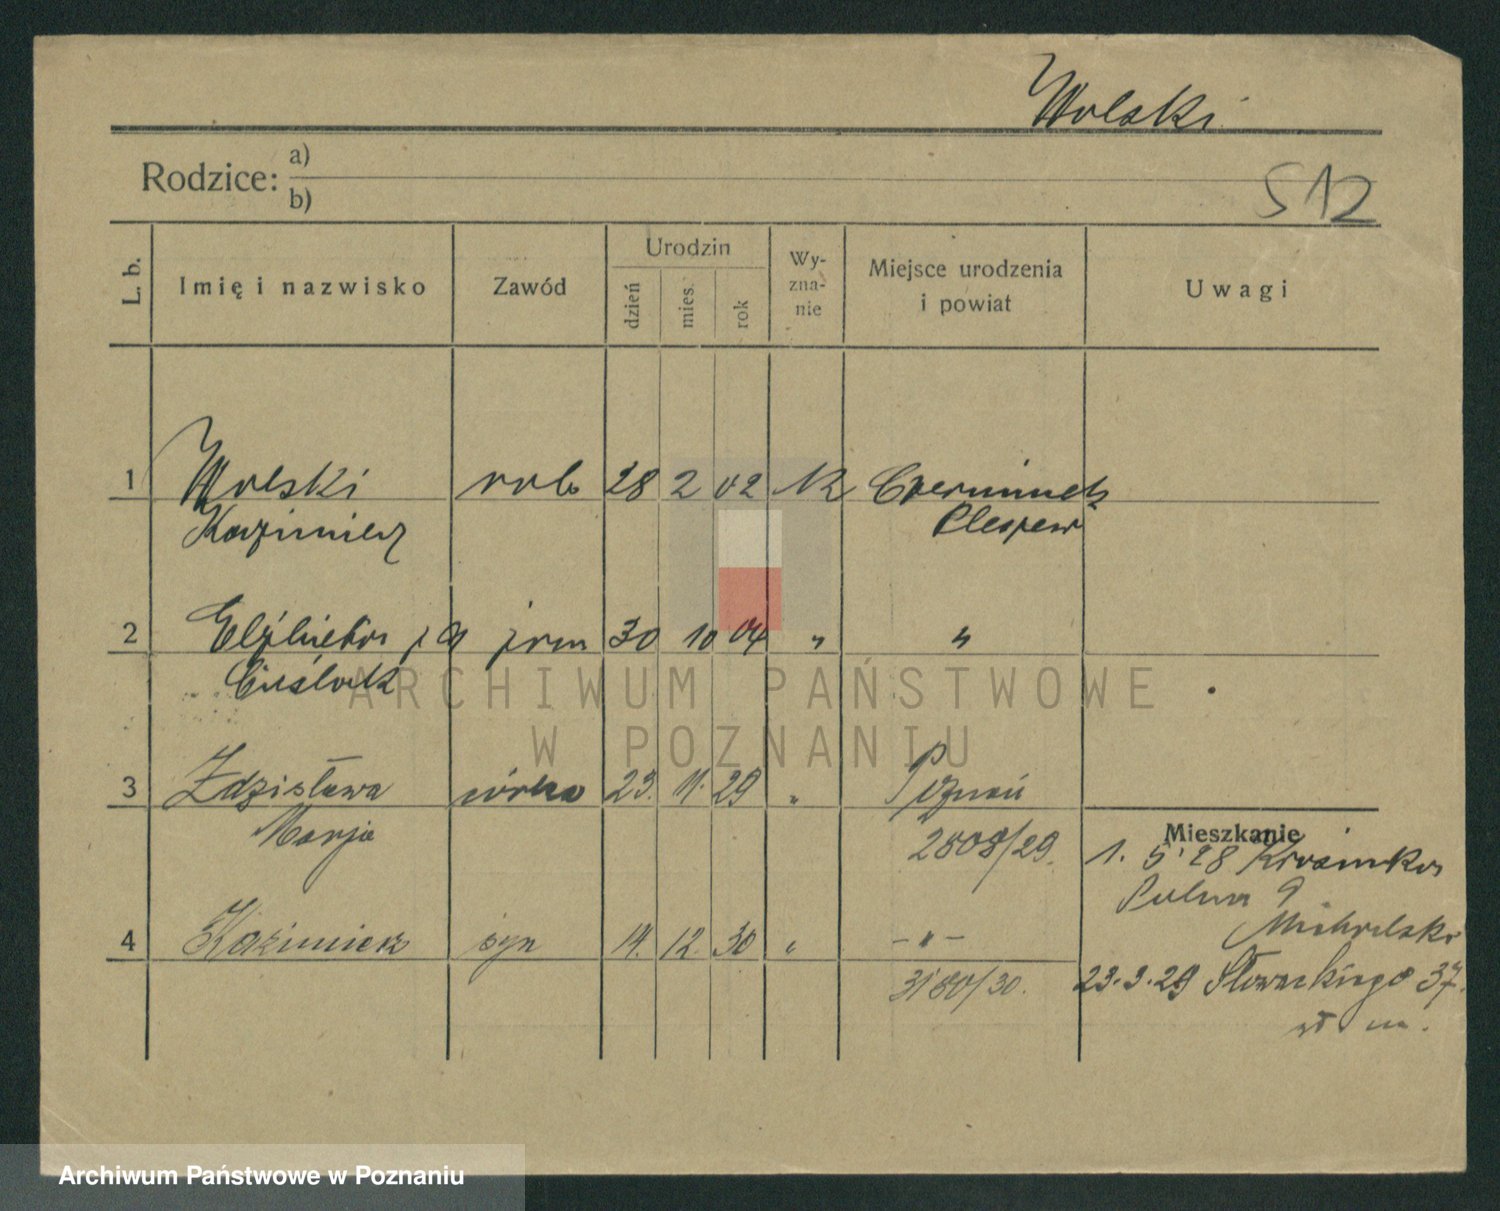 Wolski
Rodzice: a)
b)
S12
L. b.
Imię i nazwisko
Zawód
Urodzin
dzień
mies.
rok
Wy-
zna-
nie
Miejsce urodzenia
i powiat
Uwagi
1 Wolski rob 28 2 02 rk Czerminek
Kazimierz Pleszew
2 Elżbieta zd żona 30 10 04 " "
Cieślak
ARCHIWUM PAŃSTWOWE
W POZNANIU
3 Zdzisława córka 23. 11. 29 " Poznań
Marja 2808/29.
Mieszkanie
1. 5. 28
Polna 9
4 Kazimierz syn 14. 12. 30 " -"-
3180/30.
23.3.29 Słowackiego 37.
wł m.
Archiwum Państwowe w Poznaniu